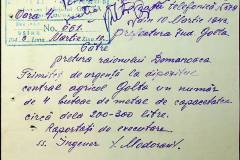 Ora 4.
Nota Telefonică №
din 10 Martie 194
No. 661
Prefectura Jud. Golta
Martie
Către
pretura raionului Domanevca
Trimiteți de urgență la dispoziția
centrale agricol Golta un număr
de 4 butoae de metal de capacitatea
circă dela 200-300 litre.
Raportați de executare
ss. Inginer I. Modoran